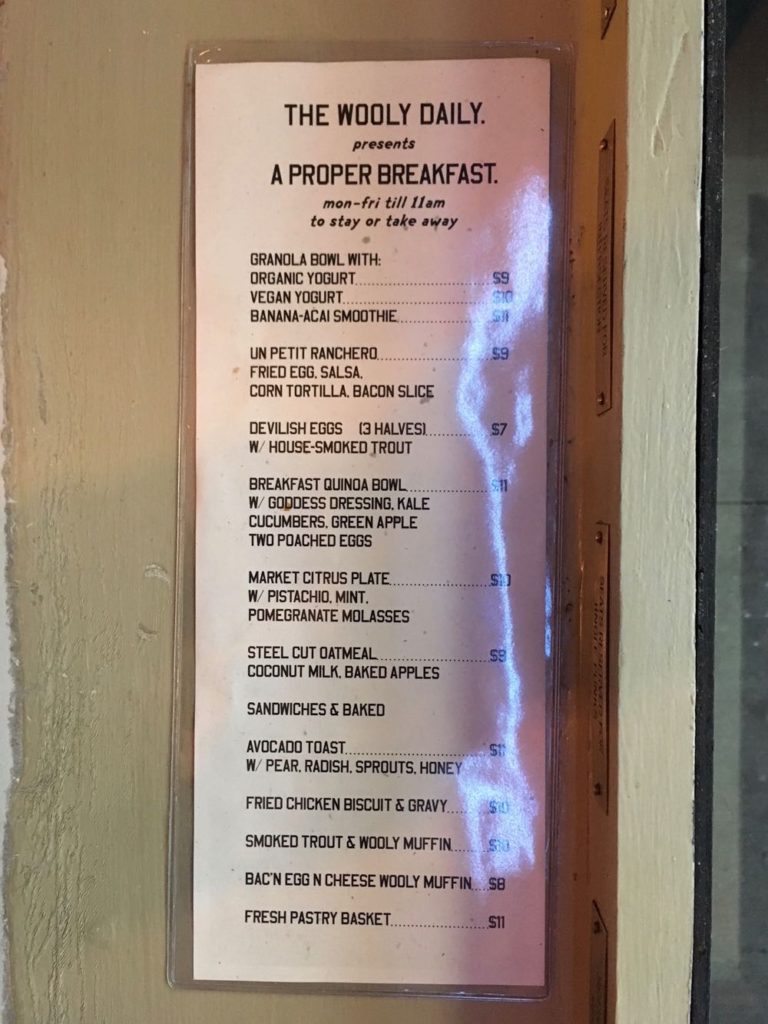 THE WOOLY DAILY.
presents
A PROPER BREAKFAST.
mon-fri till 11am
to stay or take away
GRANOLA BOWL WITH:
ORGANIC YOGURT $9
VEGAN YOGURT $10
BANANA-ACAI SMOOTHIE $11
UN PETIT RANCHERO $9
FRIED EGG, SALSA,
CORN TORTILLA, BACON SLICE
DEVILISH EGGS (3 HALVES) $7
W/ HOUSE-SMOKED TROUT
BREAKFAST QUINOA BOWL $11
W/ GODDESS DRESSING, KALE
CUCUMBERS, GREEN APPLE
TWO POACHED EGGS
MARKET CITRUS PLATE $10
W/ PISTACHIO, MINT,
POMEGRANATE MOLASSES
STEEL CUT OATMEAL
COCONUT MILK, BAKED APPLES
SANDWICHES & BAKED
AVOCADO TOAST $11
W/ PEAR, RADISH, SPROUTS, HONEY
FRIED CHICKEN BISCUIT & GRAVY $10
SMOKED TROUT & WOOLY MUFFIN $10
BAC'N EGG N CHEESE WOOLY MUFFIN $8
FRESH PASTRY BASKET $11